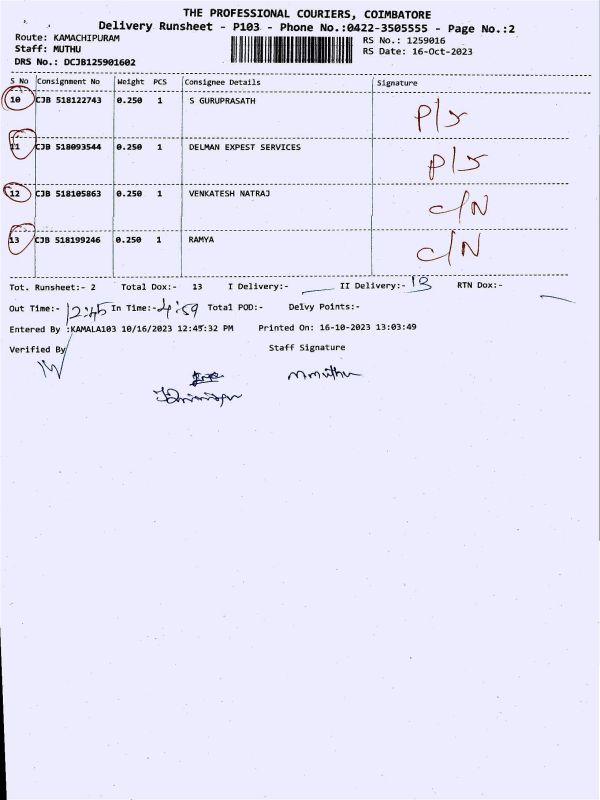 THE PROFESSIONAL COURIERS, COIMBATORE
Delivery Runsheet - P103 - Phone No.:0422-3505555 - Page No.:2
Route: KAMACHIPURAM
RS No.: 1259016
Staff: MUTHU
RS Date: 16-Oct-2023
DRS No.: DCJB125901602
S No Consignment No Weight PCS Consignee Details Signature
10 CJB 518122743 0.250 1 S GURUPRASATH P/s
11 CJB 518093544 0.250 1 DELMAN EXPEST SERVICES P/s
12 CJB 518105863 0.250 1 VENKATESH NATRAJ C/N
13 CJB 518199246 0.250 1 RAMYA C/N
Tot. Runsheet:- 2 Total Dox:- 13 I Delivery:- II Delivery:- 13 RTN Dox:-
Out Time:- 12:45 In Time:- 4:59 Total POD:- Delvy Points:-
Entered By :KAMALA103 10/16/2023 12:45:32 PM Printed On: 16-10-2023 13:03:49
Verified By Staff Signature
mmuthu